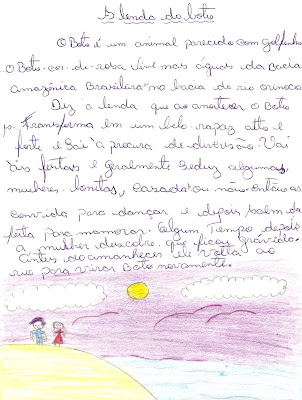 A lenda do boto
O Boto é um animal parecido com Golfinho
O Boto-cor-de-rosa vive nas águas da Bacia
Amazônica Brasileira na bacia do rio orinoco
Diz a lenda que ao anoitecer o Boto
Transforma em um belo rapaz alto e
forte e Sai à procura de diversão. Vai
às festas e geralmente seduz algumas
mulheres bonitas, casadas ou não. Então as
convida para dançar e depois saem da
festa para namorar. Algum tempo depois
a mulher descobre que ficou grávida.
Antes do amanhecer ele volta ao
rio para virar Boto novamente.